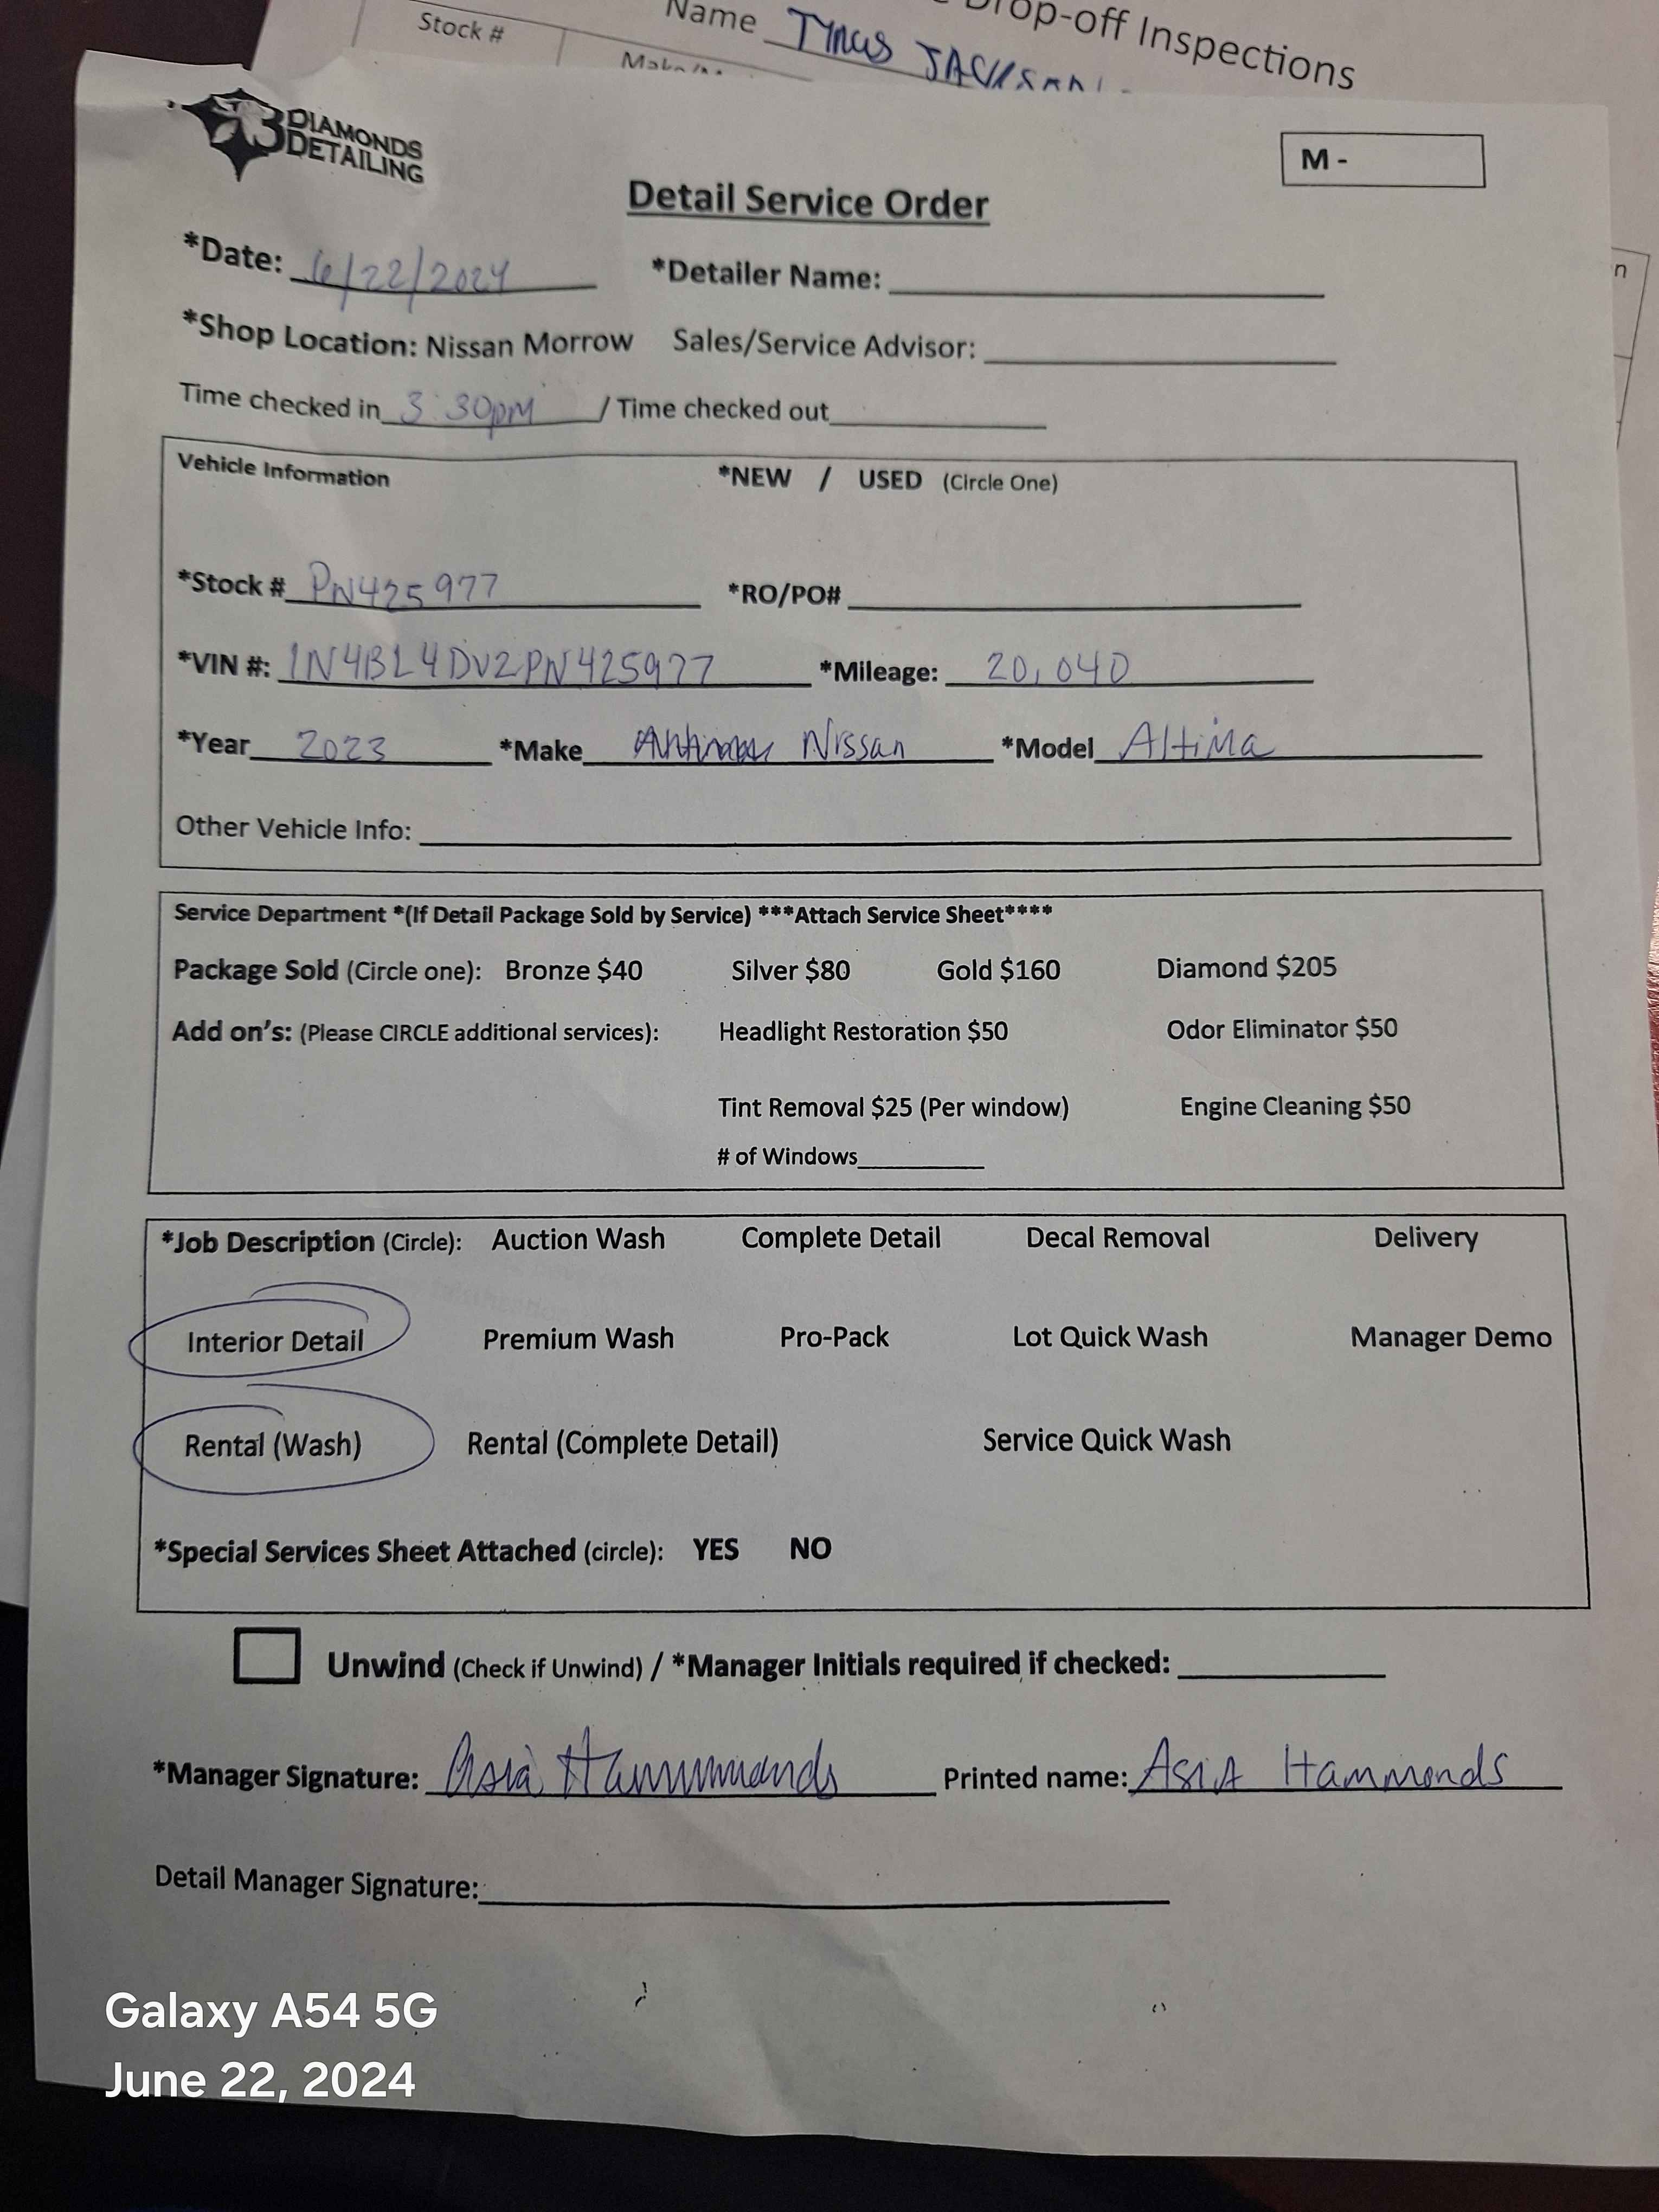 Drop-off Inspections
Name Tyrus JACKSON
Stock #
3 DIAMONDS
DETAILING
M -
Detail Service Order
*Date: 6/22/2024 *Detailer Name:
*Shop Location: Nissan Morrow Sales/Service Advisor:
Time checked in 3:30pm / Time checked out
n
Vehicle Information *NEW / USED (Circle One)
*Stock # PN425977 *RO/PO#
*VIN #: 1N4BL4DV2PN425977 *Mileage: 20,040
*Year 2023 *Make Nissan *Model Altima
Other Vehicle Info:
Service Department *(If Detail Package Sold by Service) ***Attach Service Sheet****
Package Sold (Circle one): Bronze $40 Silver $80 Gold $160 Diamond $205
Add on's: (Please CIRCLE additional services): Headlight Restoration $50 Odor Eliminator $50
Tint Removal $25 (Per window) Engine Cleaning $50
# of Windows
*Job Description (Circle): Auction Wash Complete Detail Decal Removal Delivery
Interior Detail Premium Wash Pro-Pack Lot Quick Wash Manager Demo
Rental (Wash) Rental (Complete Detail) Service Quick Wash
*Special Services Sheet Attached (circle): YES NO
Unwind (Check if Unwind) / *Manager Initials required if checked:
*Manager Signature: Asia Hammonds Printed name: Asia Hammonds
Detail Manager Signature:
Galaxy A54 5G
June 22, 2024